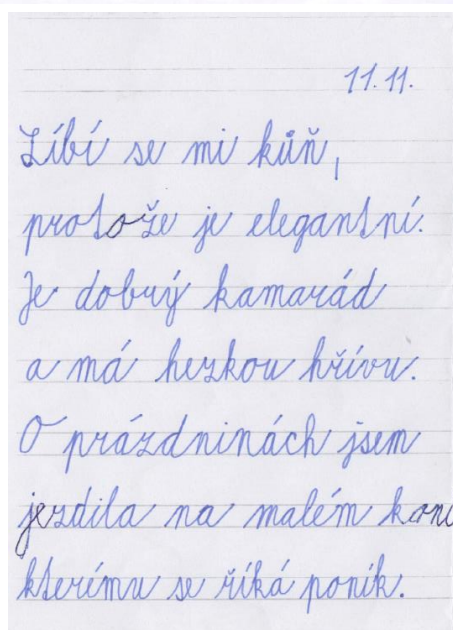 11.11.
Líbí se mi kůň,
protože je elegantní.
Je dobrý kamarád
a má hezkou hřívu.
O prázdninách jsem
jezdila na malém koni
kterému se říká poník.